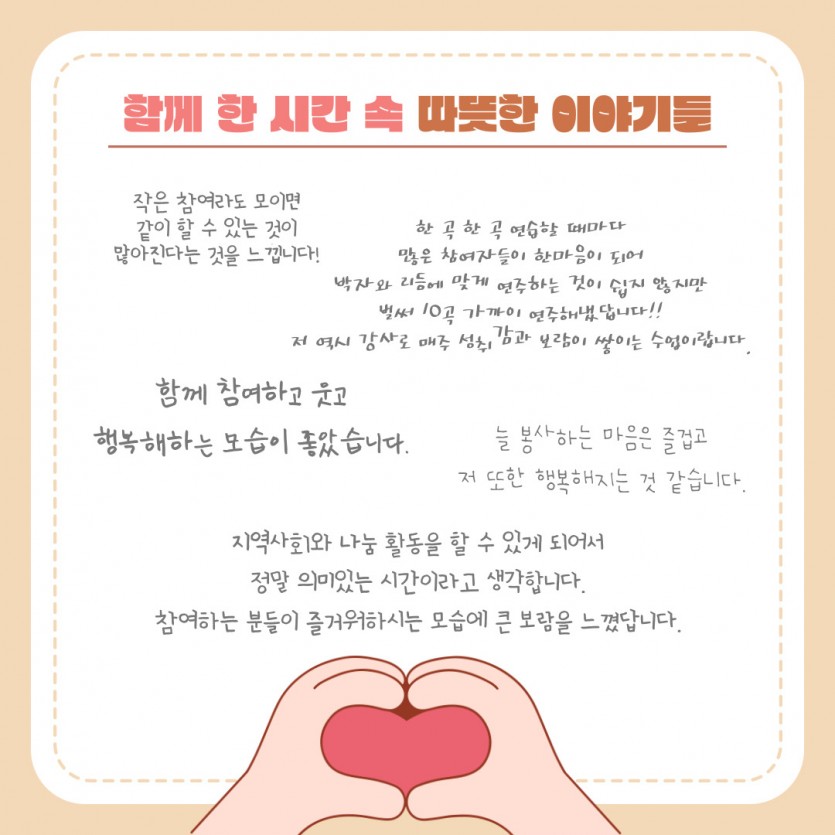 함께 한 시간 속 따뜻한 이야기들
작은 참여라도 모이면
같이 할 수 있는 것이
많아진다는 것을 느낍니다!
한 곡 한 곡 연습할 때마다
많은 참여자들이 한마음이 되어
박자와 리듬에 맞게 연주하는 것이 쉽지 않지만
벌써 10곡 가까이 연주해냈답니다!!
저 역시 강사로 매주 성취감과 보람이 쌓이는 수업이랍니다.
함께 참여하고 웃고
행복해하는 모습이 좋았습니다.
늘 봉사하는 마음은 즐겁고
저 또한 행복해지는 것 같습니다.
지역사회와 나눔 활동을 할 수 있게 되어서
정말 의미있는 시간이라고 생각합니다.
참여하는 분들이 즐거워하시는 모습에 큰 보람을 느꼈답니다.